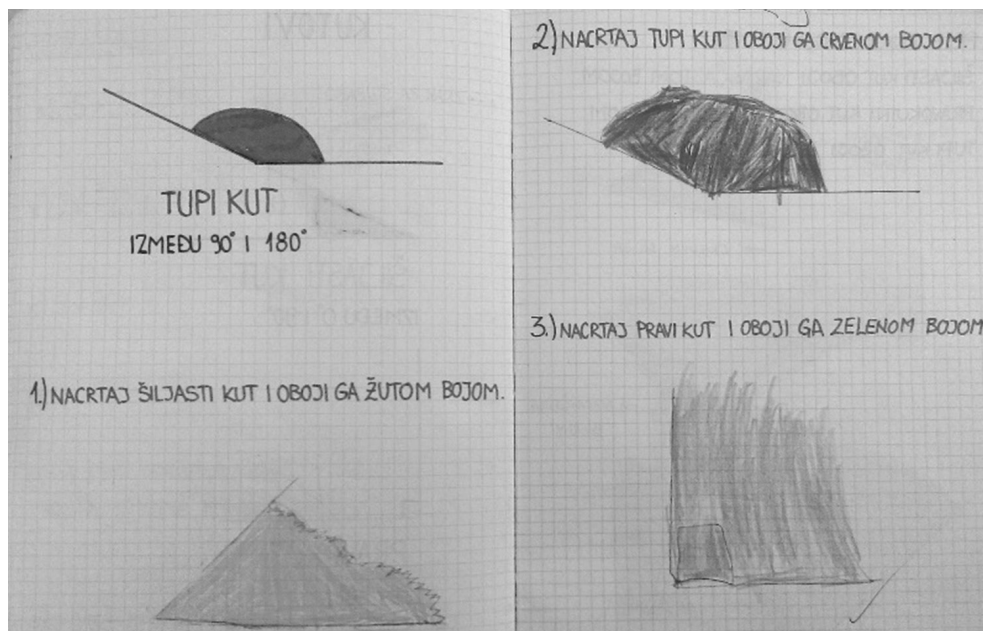 TUPI KUT
IZMEĐU 90° I 180°
1.) NACRTAJ ŠILJASTI KUT I OBOJI GA ŽUTOM BOJOM.
2.) NACRTAJ TUPI KUT I OBOJI GA CRVENOM BOJOM.
3.) NACRTAJ PRAVI KUT I OBOJI GA ZELENOM BOJOM